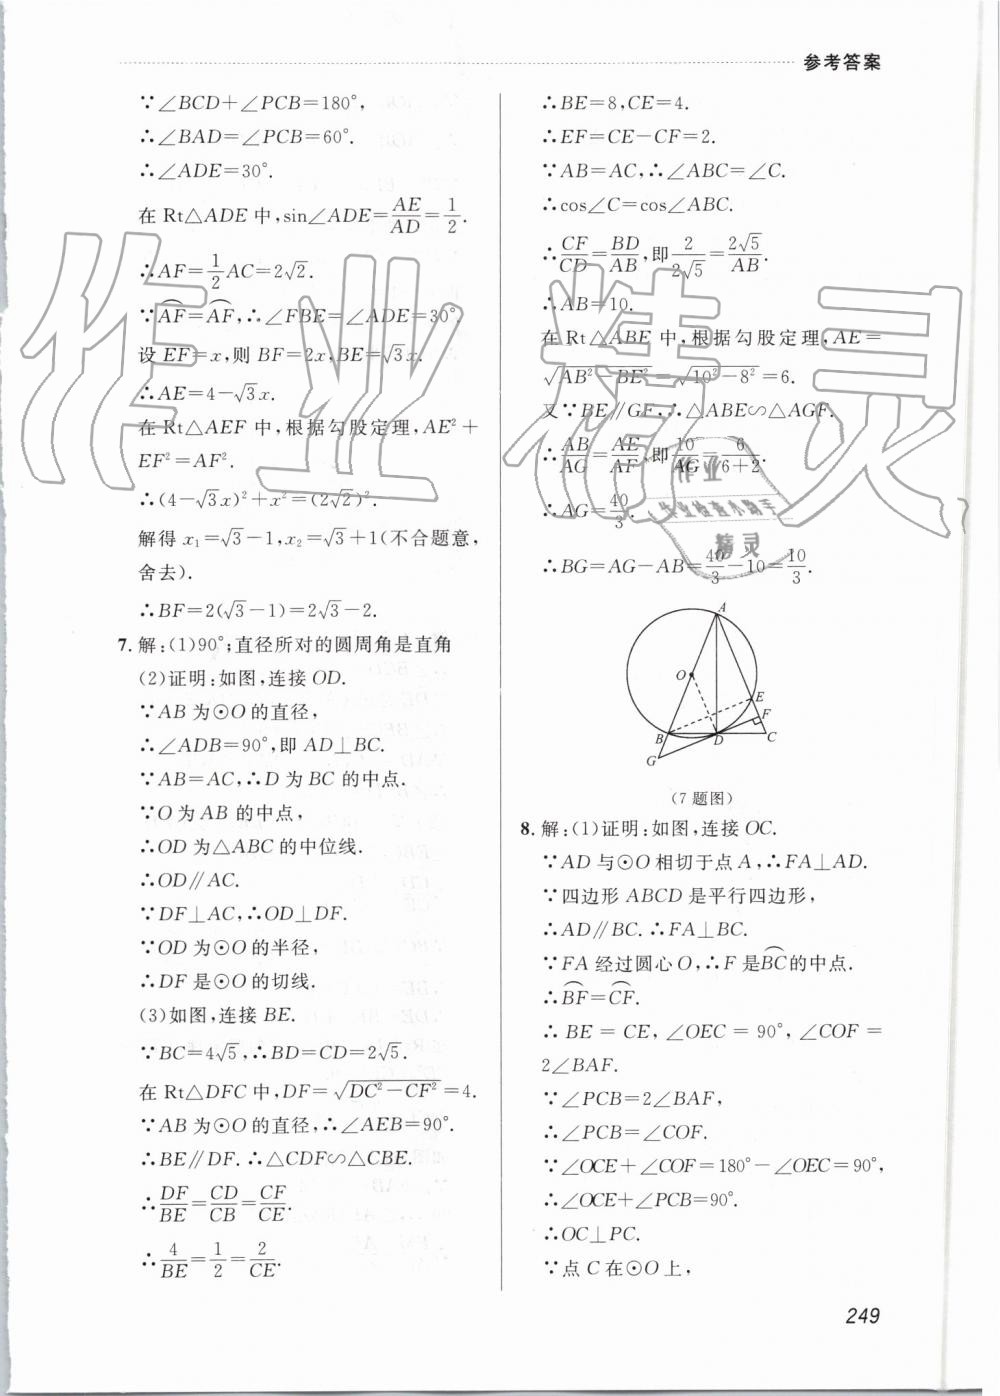 参考答案
∵∠BCD+∠PCB=180°,
∴∠BAD=∠PCB=60°.
∴∠ADE=30°.
在 Rt△ADE 中,sin∠ADE=AE/AD=1/2.
∴AF=1/2AC=2√2.
∵A͡F=A͡F,∴∠FBE=∠ADE=30°.
设 EF=x,则 BF=2x,BE=√3x.
∴AE=4-√3x.
在 Rt△AEF 中,根据勾股定理,AE²+
EF²=AF².
∴(4-√3x)²+x²=(2√2)².
解得 x₁=√3-1,x₂=√3+1(不合题意,
舍去).
∴BF=2(√3-1)=2√3-2.
7. 解:(1)90°;直径所对的圆周角是直角
(2)证明:如图,连接 OD.
∵AB 为⊙O 的直径,
∴∠ADB=90°,即 AD⊥BC.
∵AB=AC,∴D 为 BC 的中点.
∵O 为 AB 的中点,
∴OD 为△ABC 的中位线.
∴OD∥AC.
∵DF⊥AC,∴OD⊥DF.
∵OD 为⊙O 的半径,
∴DF 是⊙O 的切线.
(3)如图,连接 BE.
∵BC=4√5,∴BD=CD=2√5.
在 Rt△DFC 中,DF=√(DC²-CF²)=4.
∵AB 为⊙O 的直径,∴∠AEB=90°.
∴BE∥DF.∴△CDF∽△CBE.
∴DF/BE=CD/CB=CF/CE.
∴4/BE=1/2=2/CE.
∴BE=8,CE=4.
∴EF=CE-CF=2.
∵AB=AC,∴∠ABC=∠C.
∴cos∠C=cos∠ABC.
∴CF/CD=BD/AB,即2/2√5=2√5/AB.
∴AB=10.
在 Rt△ABE 中,根据勾股定理,AE=
√(AB²-BE²)=√(10²-8²)=6.
又∵BE∥GF,∴△ABE∽△AGF.
∴AB/AG=AE/AF,即10/AG=6/(6+2).
∴AG=40/3.
∴BG=AG-AB=40/3-10=10/3.
A
O
E
F
B
D
C
G
(7 题图)
8. 解:(1)证明:如图,连接 OC.
∵AD 与⊙O 相切于点 A,∴FA⊥AD.
∵四边形 ABCD 是平行四边形,
∴AD∥BC.∴FA⊥BC.
∵FA 经过圆心 O,∴F 是B͡C的中点.
∴B͡F=C͡F.
∴BE=CE,∠OEC=90°,∠COF=
2∠BAF.
∵∠PCB=2∠BAF,
∴∠PCB=∠COF.
∵∠OCE+∠COF=180°-∠OEC=90°,
∴∠OCE+∠PCB=90°.
∴OC⊥PC.
∵点 C 在⊙O 上,
249
作业精灵
作业
作业检查小助手
精灵